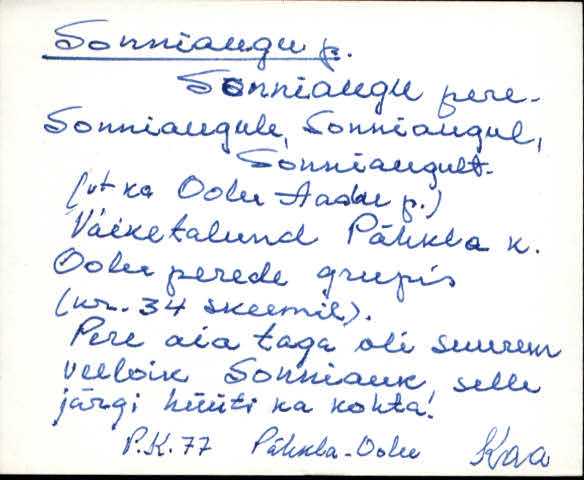 Sonniaugu p.
Sonniaugu pere-
Sonniaugule, Sonniaugul,
Sonniaugult.
(vt ka Oolu Aadu p.)
Väiketalund Pähkla k.
Oolu perede grupis
(nr. 34 skeemil).
Pere aia taga oli suurem
veeloik Sonniauk, selle
järgi hüüti ka kohta.
P.K. 77 Pähkla-Oolu Kaa